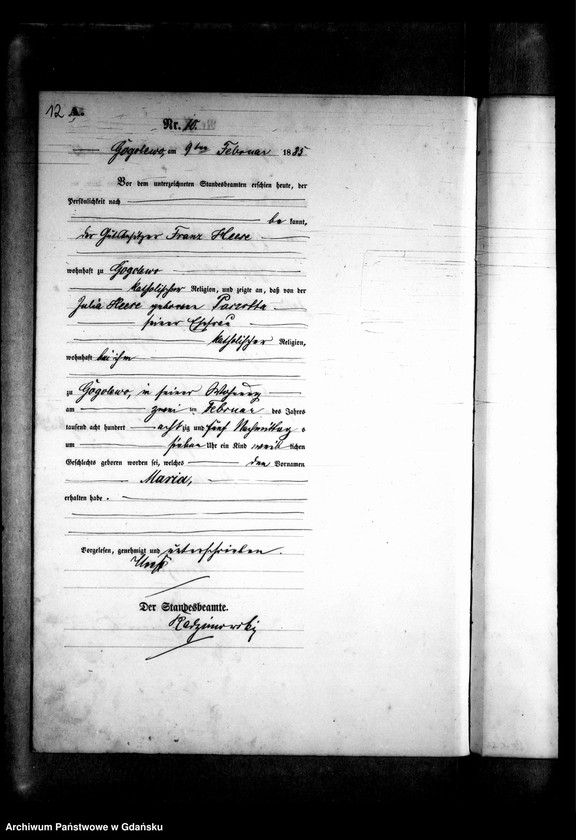 12
A.
Nr. 10.
Gogolewo, am 9ten Februar 1885
Vor dem unterzeichneten Standesbeamten erschien heute, der
Persönlichkeit nach
be kannt,
der Gutsbesitzer Franz Heese
wohnhaft zu Gogolewo
katholischer Religion, und zeigte an, daß von der
Julia Heese geborenen
seiner Ehefrau
katholischer Religion,
wohnhaft bei ihm
zu Gogolewo, in seiner Wohnung
am zwei ten Februar des Jahres
tausend acht hundert acht zig und fünf Nachmittag s
um sieben Uhr ein Kind weib lichen
Geschlechts geboren worden sei, welches den Vornamen
Maria,
erhalten habe.
Vorgelesen, genehmigt und unterschrieben.
Der Standesbeamte.
Archiwum Państwowe w Gdańsku